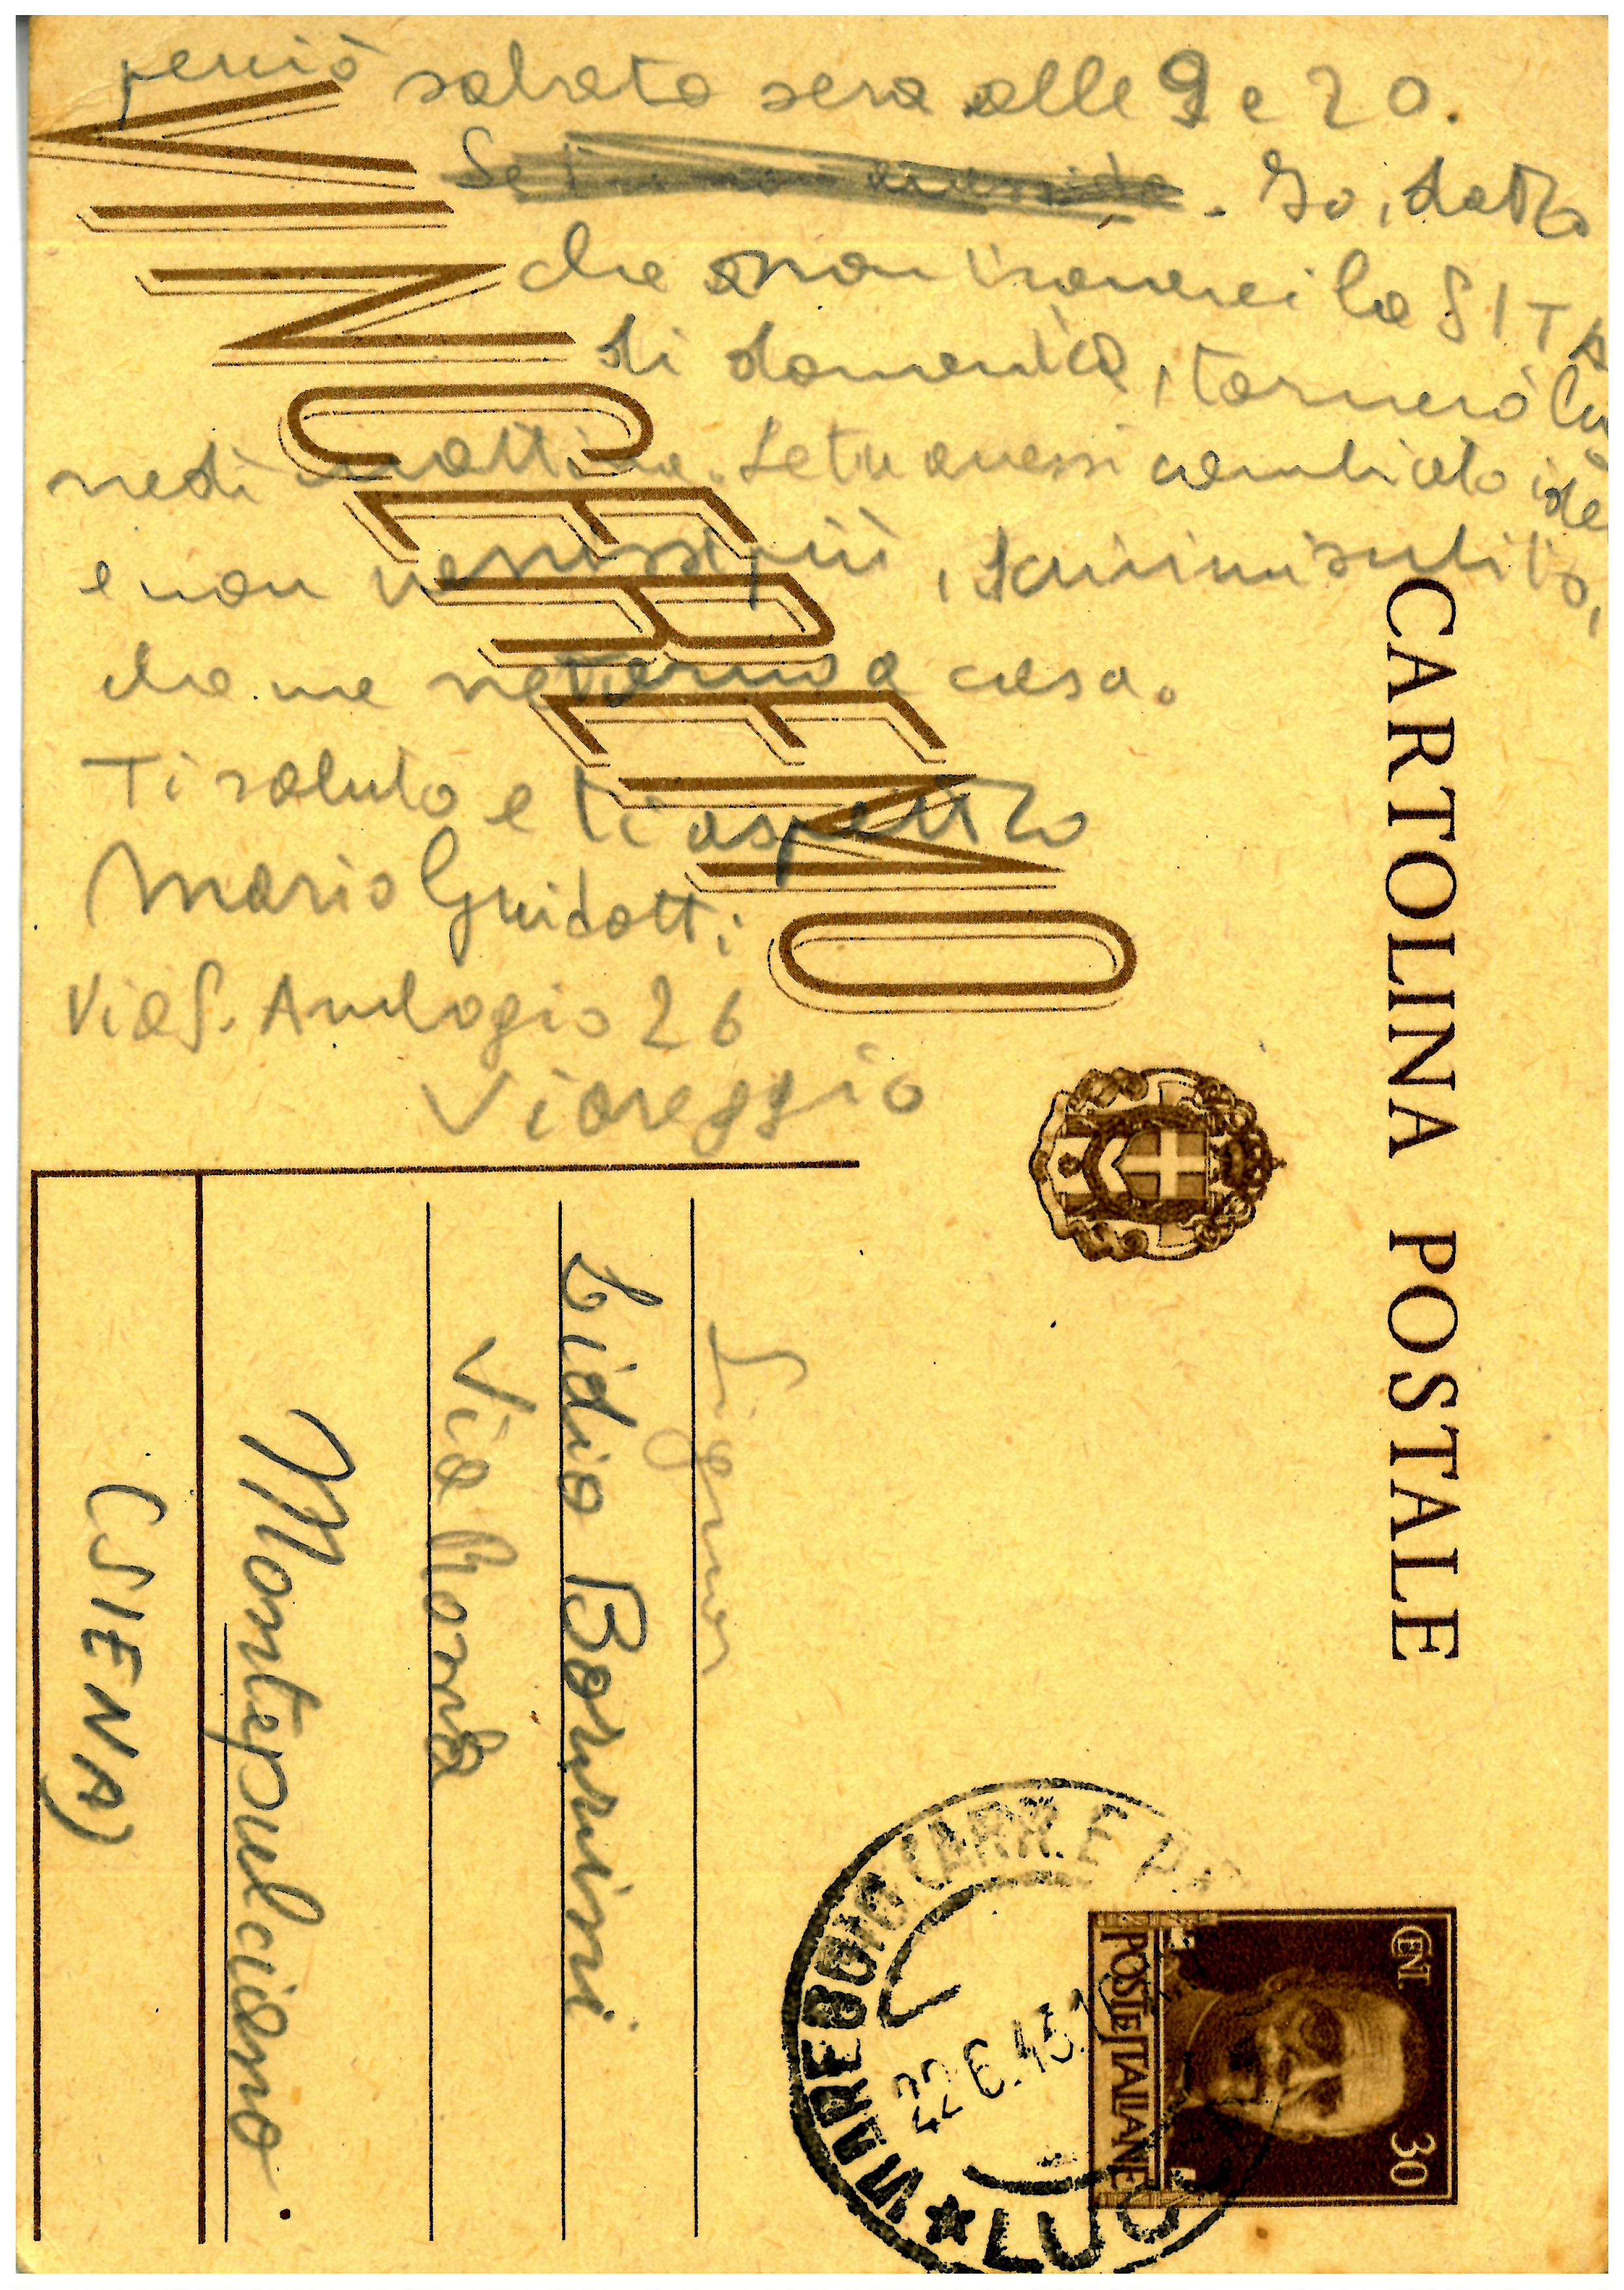 perciò sabato sera alle 9 e 20.
Io, dato
che non troverei la SITA
di domenica, tornerò lu
nedì mattina. Se tu avessi cambiato idea
e non venissi più, scrivimi subito,
che me ne tierno a casa.
Ti saluto e ti aspetto
Mario Guidotti
Via S. Ambogio 26
Viareggio
VINCEREMO
CARTOLINA POSTALE
Signor
Lidio Bonnini
Via Roma
Montepulciano.
(SIENA)
CENT 30
POSTE ITALIANE
VIAREGGIO CARR. E
22.6.43.
LUC